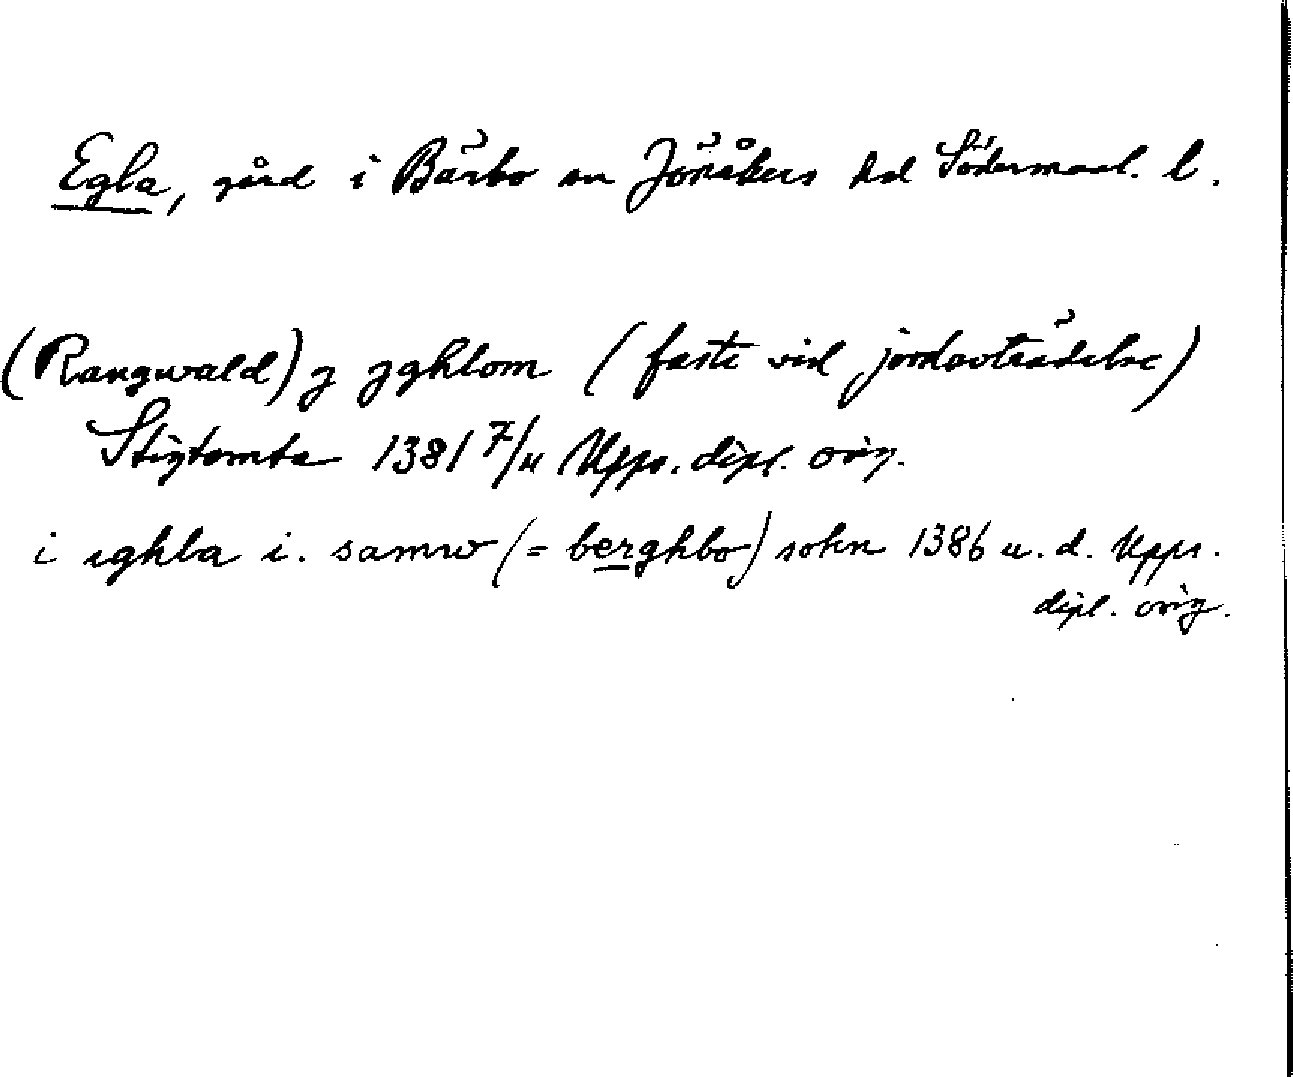 Egla, gård i Bärbo sn Jönåkers hd Södermanl. l.
(Rangwald) j jghlom (faste vid jordavträdelse)
Stigtomta 1381 7/11 Upps. dipl. orig.
i ighla i. samw (= berghbo) sokn 1386 u. d. Upps.
dipl. orig.